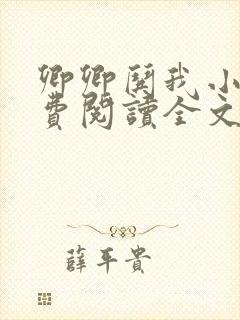 卿卿関我小
費閱讀全文
薛平貴